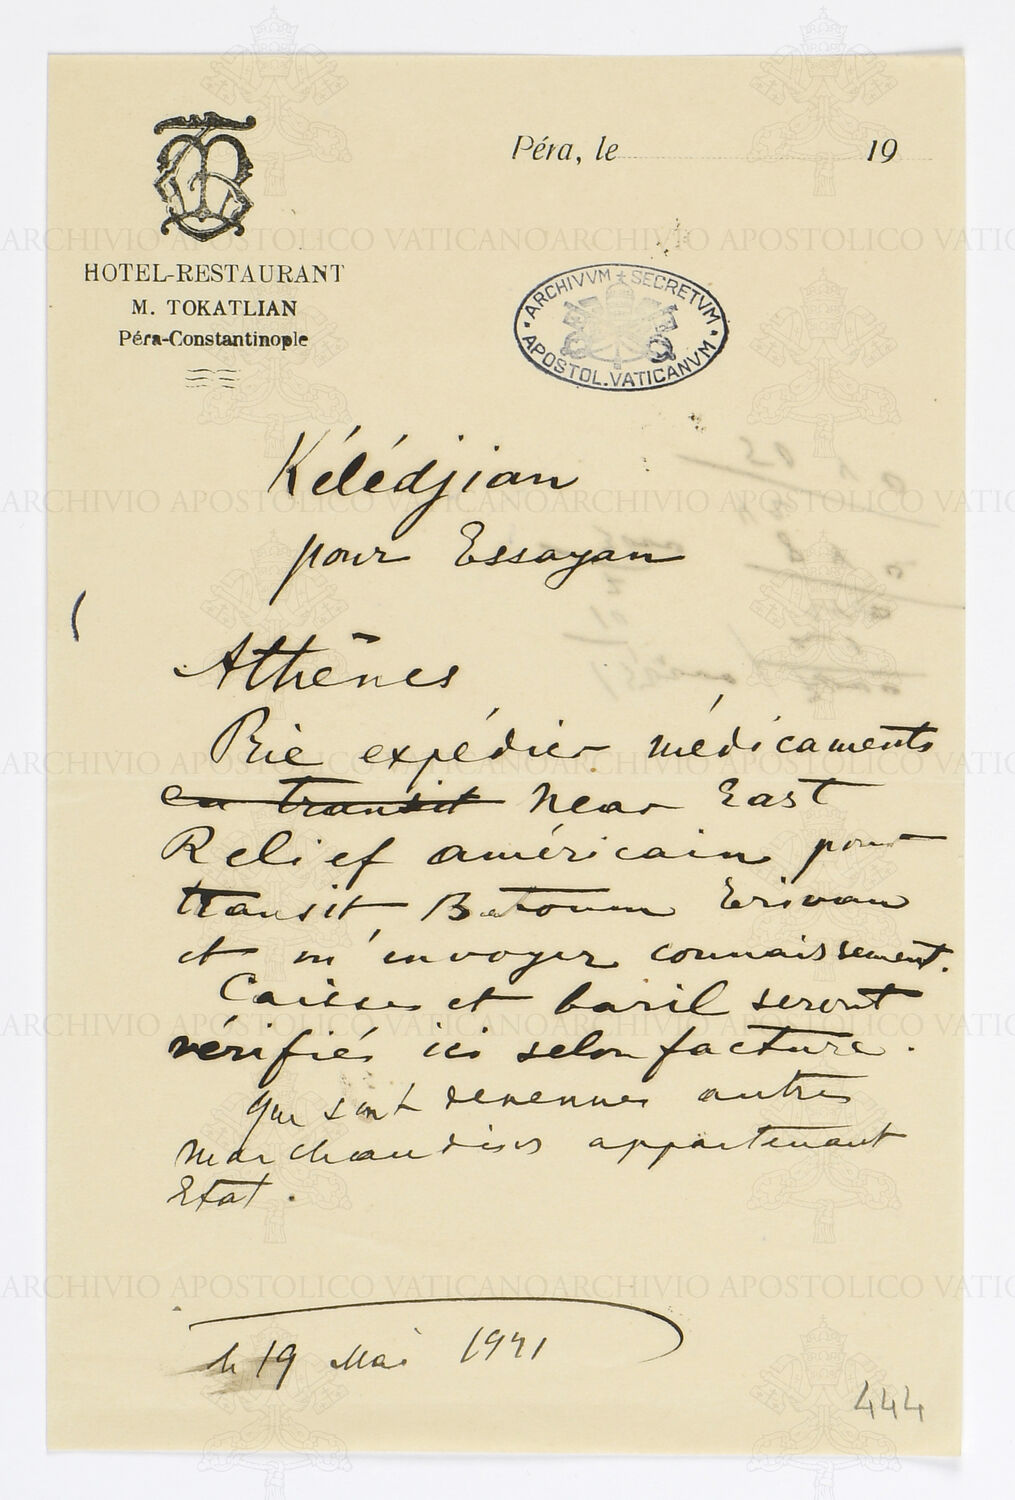 Péra, le 19
HOTEL-RESTAURANT
M. TOKATLIAN
Péra-Constantinople
ARCHIVVM SECRETVM
APOSTOL. VATICANVM
Kélédjian
pour Essayan
Athènes
Prie expédier médicaments
en transit Near East
Relief américain pour
transit Batoum Erivan
et m'envoyer connaissement.
Caisses et baril seront
vérifiés ici selon facture.
Que sont devenues autres
marchandises appartenant
Etat.
le 19 Mai 1921
444
ARCHIVIO APOSTOLICO VATICANO